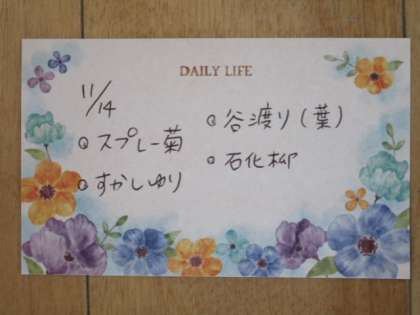 DAILY LIFE
11/14
◦ スプレー菊
◦ すかしゆり
◦ 谷渡り(葉)
◦ 石化柳